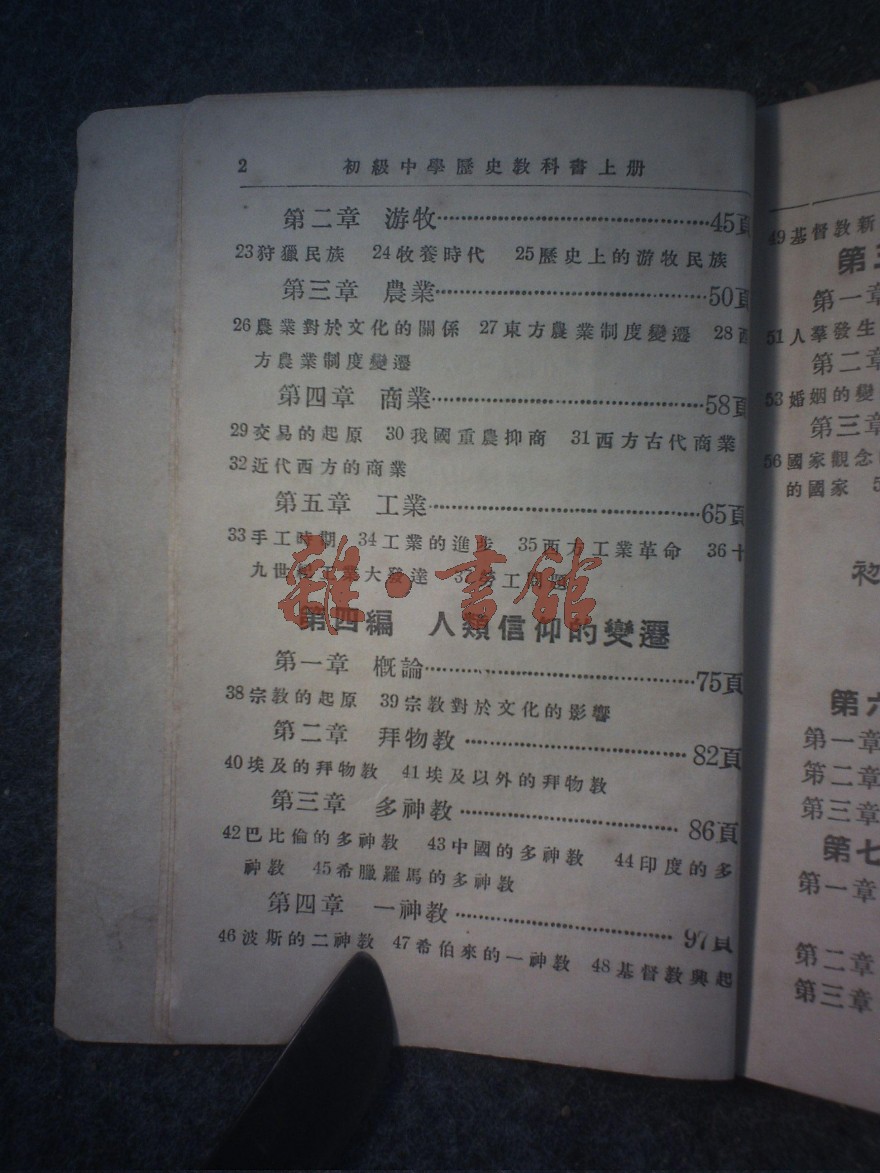 2 初級中學歷史教科書上册
第二章 游牧……45頁
23狩獵民族 24牧養時代 25歷史上的游牧民族
第三章 農業……50頁
26農業對於文化的關係 27東方農業制度變遷 28西
方農業制度變遷
第四章 商業……58頁
29交易的起原 30我國重農抑商 31西方古代商業
32近代西方的商業
第五章 工業……65頁
33手工時期 34工業的進步 35西方工業革命 36十
九世紀工業大發達 37勞工問題
雜·書館
第四編 人類信仰的變遷
第一章 概論……75頁
38宗教的起原 39宗教對於文化的影響
第二章 拜物教……82頁
40埃及的拜物教 41埃及以外的拜物教
第三章 多神教……86頁
42巴比倫的多神教 43中國的多神教 44印度的多
神教 45希臘羅馬的多神教
第四章 一神教……97頁
46波斯的二神教 47希伯來的一神教 48基督教興起
49基督教新
第
第一章
51人羣發生
第二章
53婚姻的變
第三章
56國家觀念
的國家
初
第六
第一章
第二章
第三章
第七
第一章
第二章
第三章